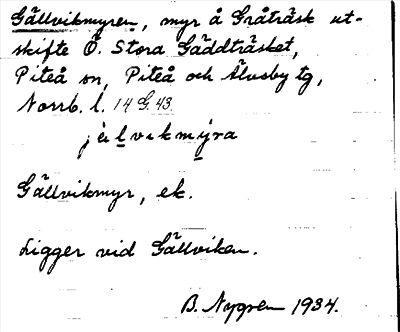 Gällvikmyren, myr å Gråträsk ut-
skifte Ö. Stora Gäddträsket,
Piteå sn, Piteå och Älvsby tg,
Norrb. l. 14 G. 43.
jälvikmýra
Gällvikmyr, ek.
Ligger vid Gällviken.
B. Nygren 1934.